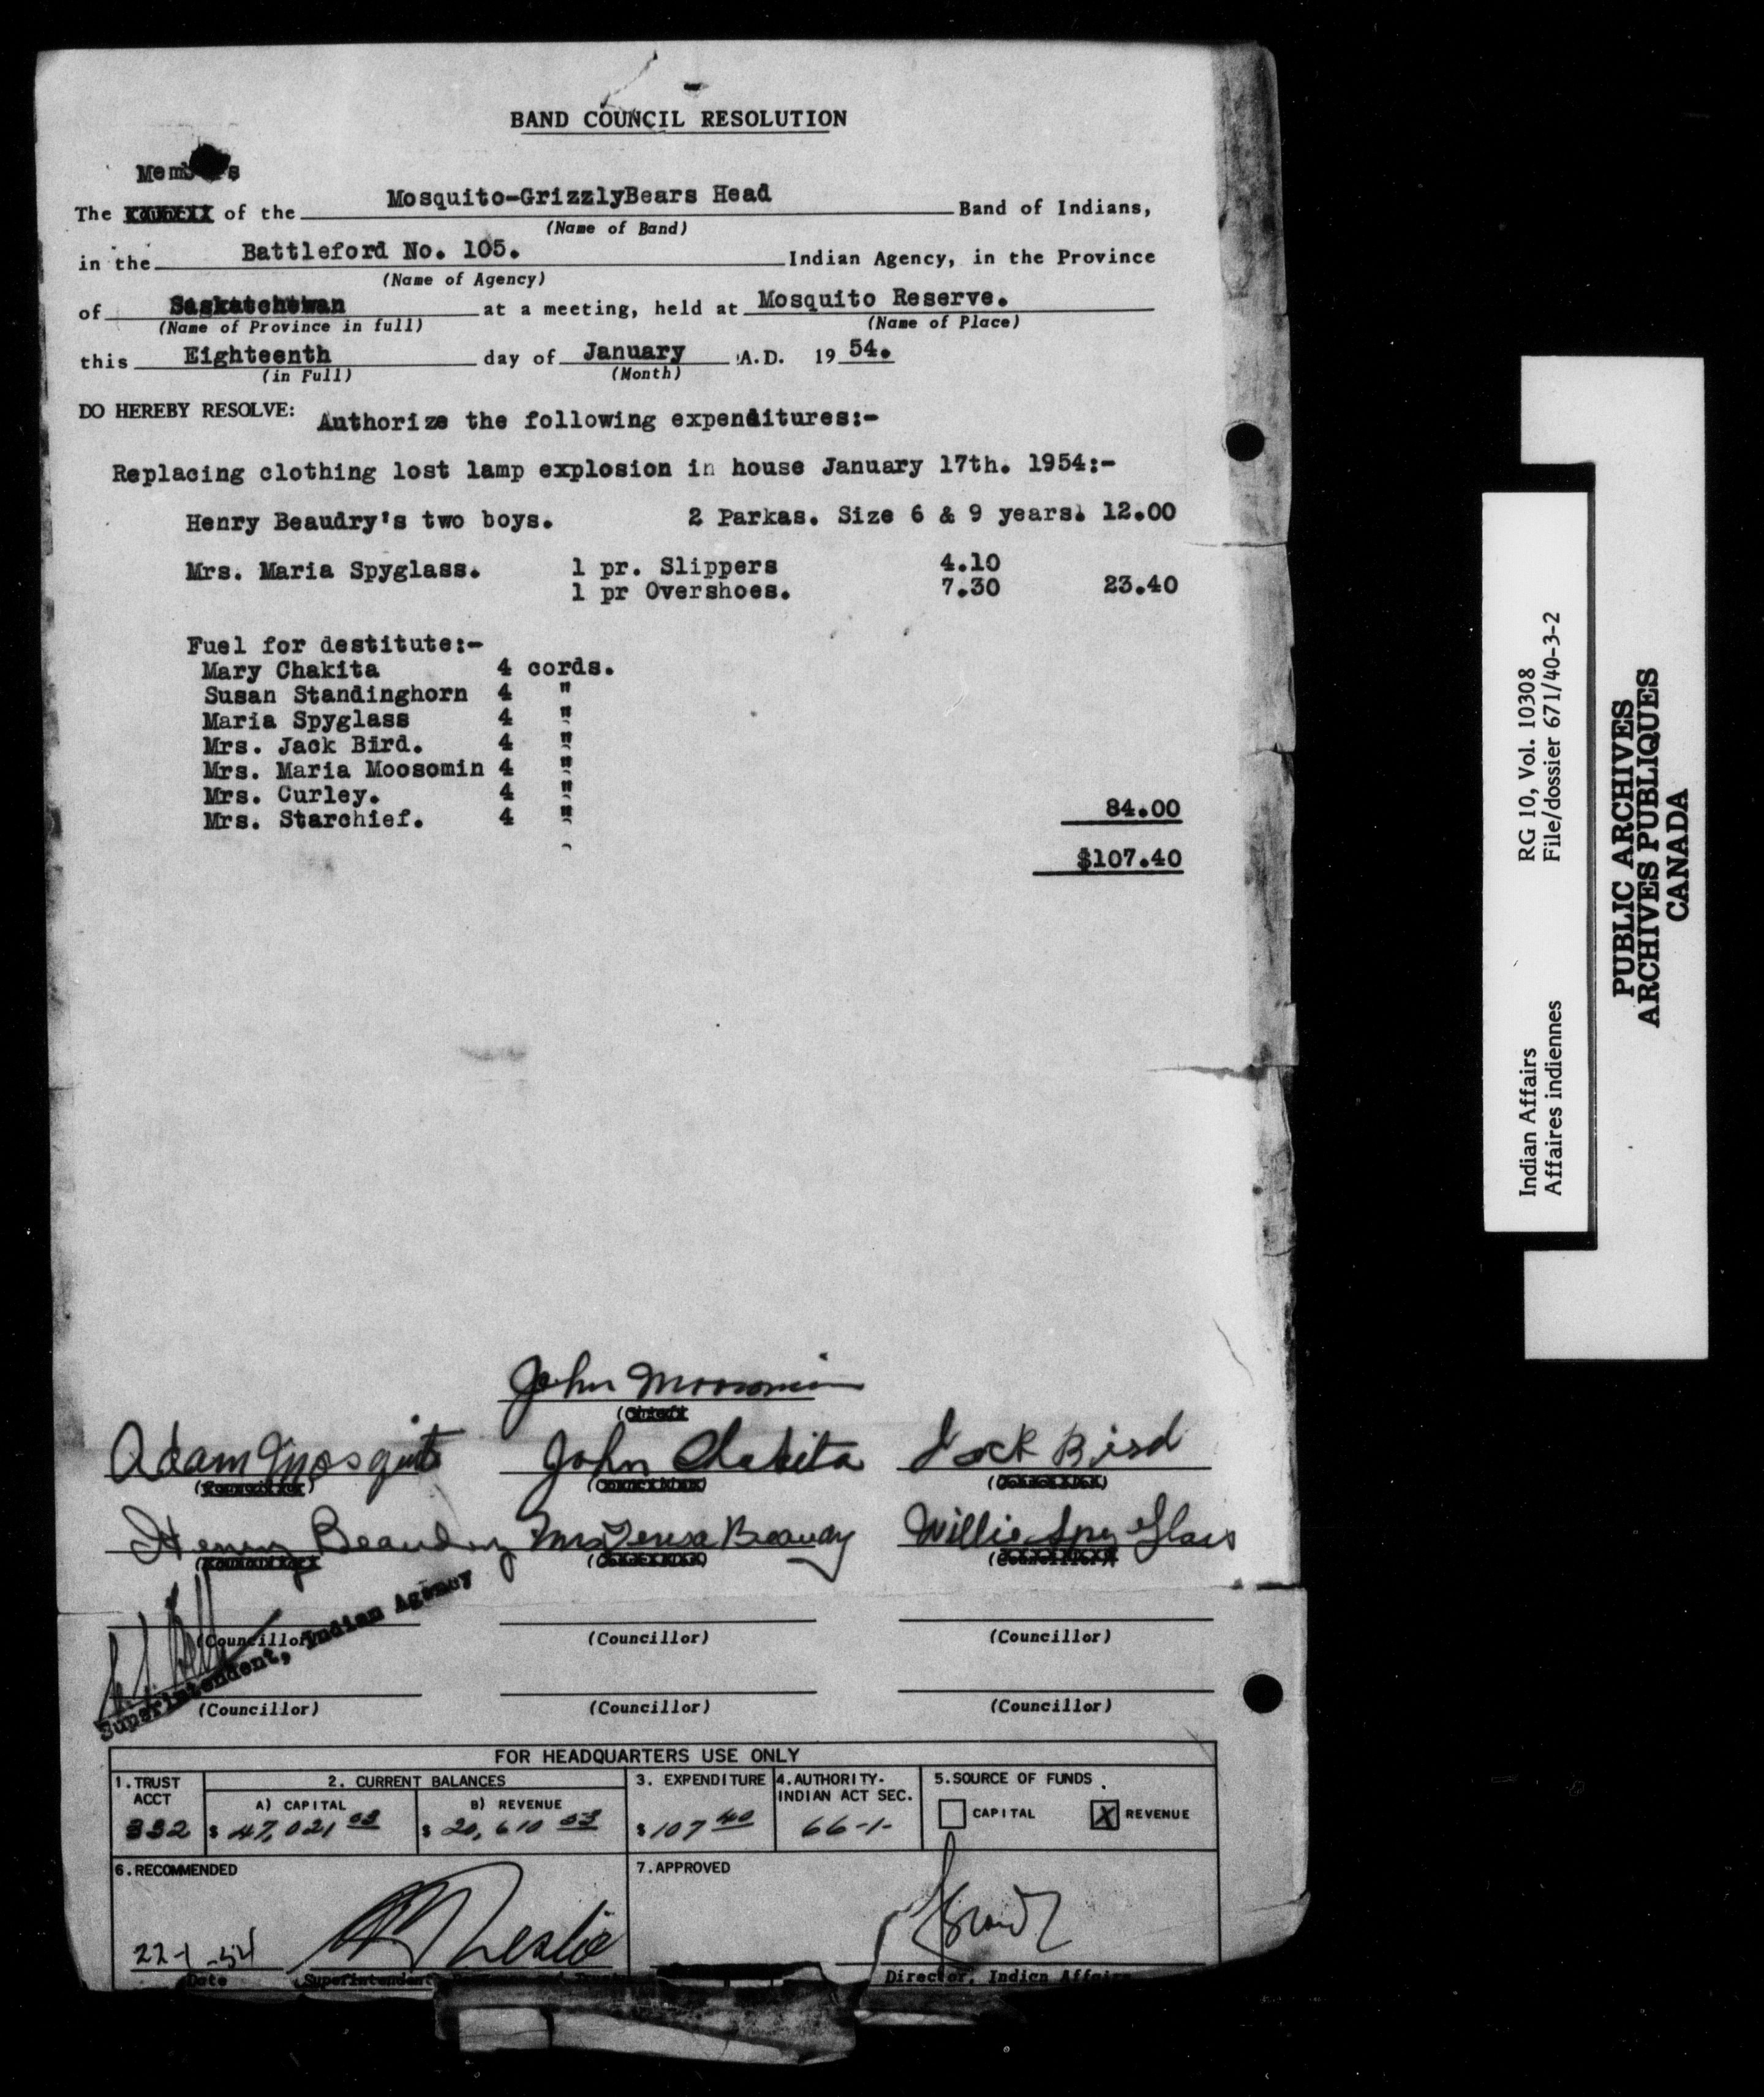 BAND COUNCIL RESOLUTION
Members
The Council of the Mosquito-GrizzlyBears Head Band of Indians,
(Name of Band)
in the Battleford No. 105. Indian Agency, in the Province
(Name of Agency)
of Saskatchewan at a meeting, held at Mosquito Reserve.
(Name of Province in full) (Name of Place)
this Eighteenth day of January A.D. 19 54.
(in Full) (Month)
DO HEREBY RESOLVE: Authorize the following expenditures:-
Replacing clothing lost lamp explosion in house January 17th. 1954:-
Henry Beaudry's two boys. 2 Parkas. Size 6 & 9 years. 12.00
Mrs. Maria Spyglass. 1 pr. Slippers 4.10
1 pr Overshoes. 7.30 23.40
Fuel for destitute:-
Mary Chakita 4 cords.
Susan Standinghorn 4 "
Maria Spyglass 4 "
Mrs. Jack Bird. 4 "
Mrs. Maria Moosomin 4 "
Mrs. Curley. 4 "
Mrs. Starchief. 4 " 84.00
$107.40
John Moosomin
(Chief)
Adam Mosquito John Chakita Jack Bird
(Councillor) (Councillor) (Councillor)
Henry Beaudry Mrs Teresa Beaudry Willie Spy Glass
(Councillor) (Councillor) (Councillor)
Superintendent, Indian Agency
(Councillor) (Councillor) (Councillor)
(Councillor) (Councillor) (Councillor)
FOR HEADQUARTERS USE ONLY
1. TRUST ACCT 2. CURRENT BALANCES 3. EXPENDITURE 4. AUTHORITY- INDIAN ACT SEC. 5. SOURCE OF FUNDS
A) CAPITAL B) REVENUE CAPITAL X REVENUE
332 $ 47,021 03 $ 20,610 53 $ 107 40 66-1-
6. RECOMMENDED 7. APPROVED
22-1-54 Leslie
Date Superintendent Director, Indian Affairs
Indian Affairs RG 10, Vol. 10308
Affaires indiennes File/dossier 671/40-3-2
PUBLIC ARCHIVES
ARCHIVES PUBLIQUES
CANADA